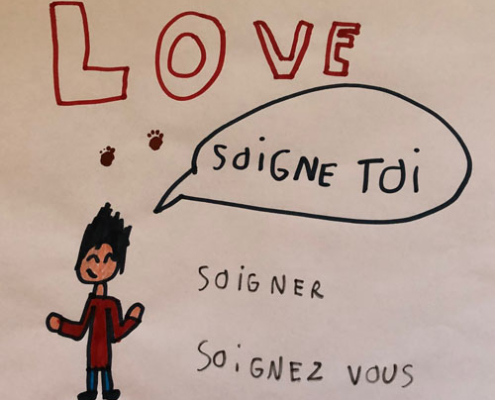 LOVE
SOiGNE TOi
SOiGNER
SOiGNEZ VOUS